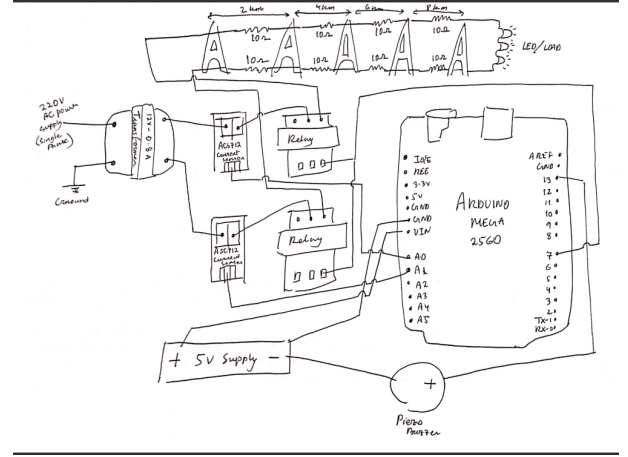 2 km
4km
6km
8km
10Ω
10Ω
10Ω
10Ω
10Ω
10Ω
10Ω
10Ω
LED/LOAD
220V
AC power
supply
(Single
Phase)
Ground
12V - 0.8A
ACS712
current
sensor
Relay
Current
Relay
IO/E
REF
3.3V
5V
GND
GND
VIN
A0
A1
A2
A3
A4
A5
ARDUINO
MEGA
2560
AREF
GND
13
12
11
10
9
8
7
6
5
4
3
2
TX-1
RX-0
+ 5V Supply -
+
Piezo
Buzzer